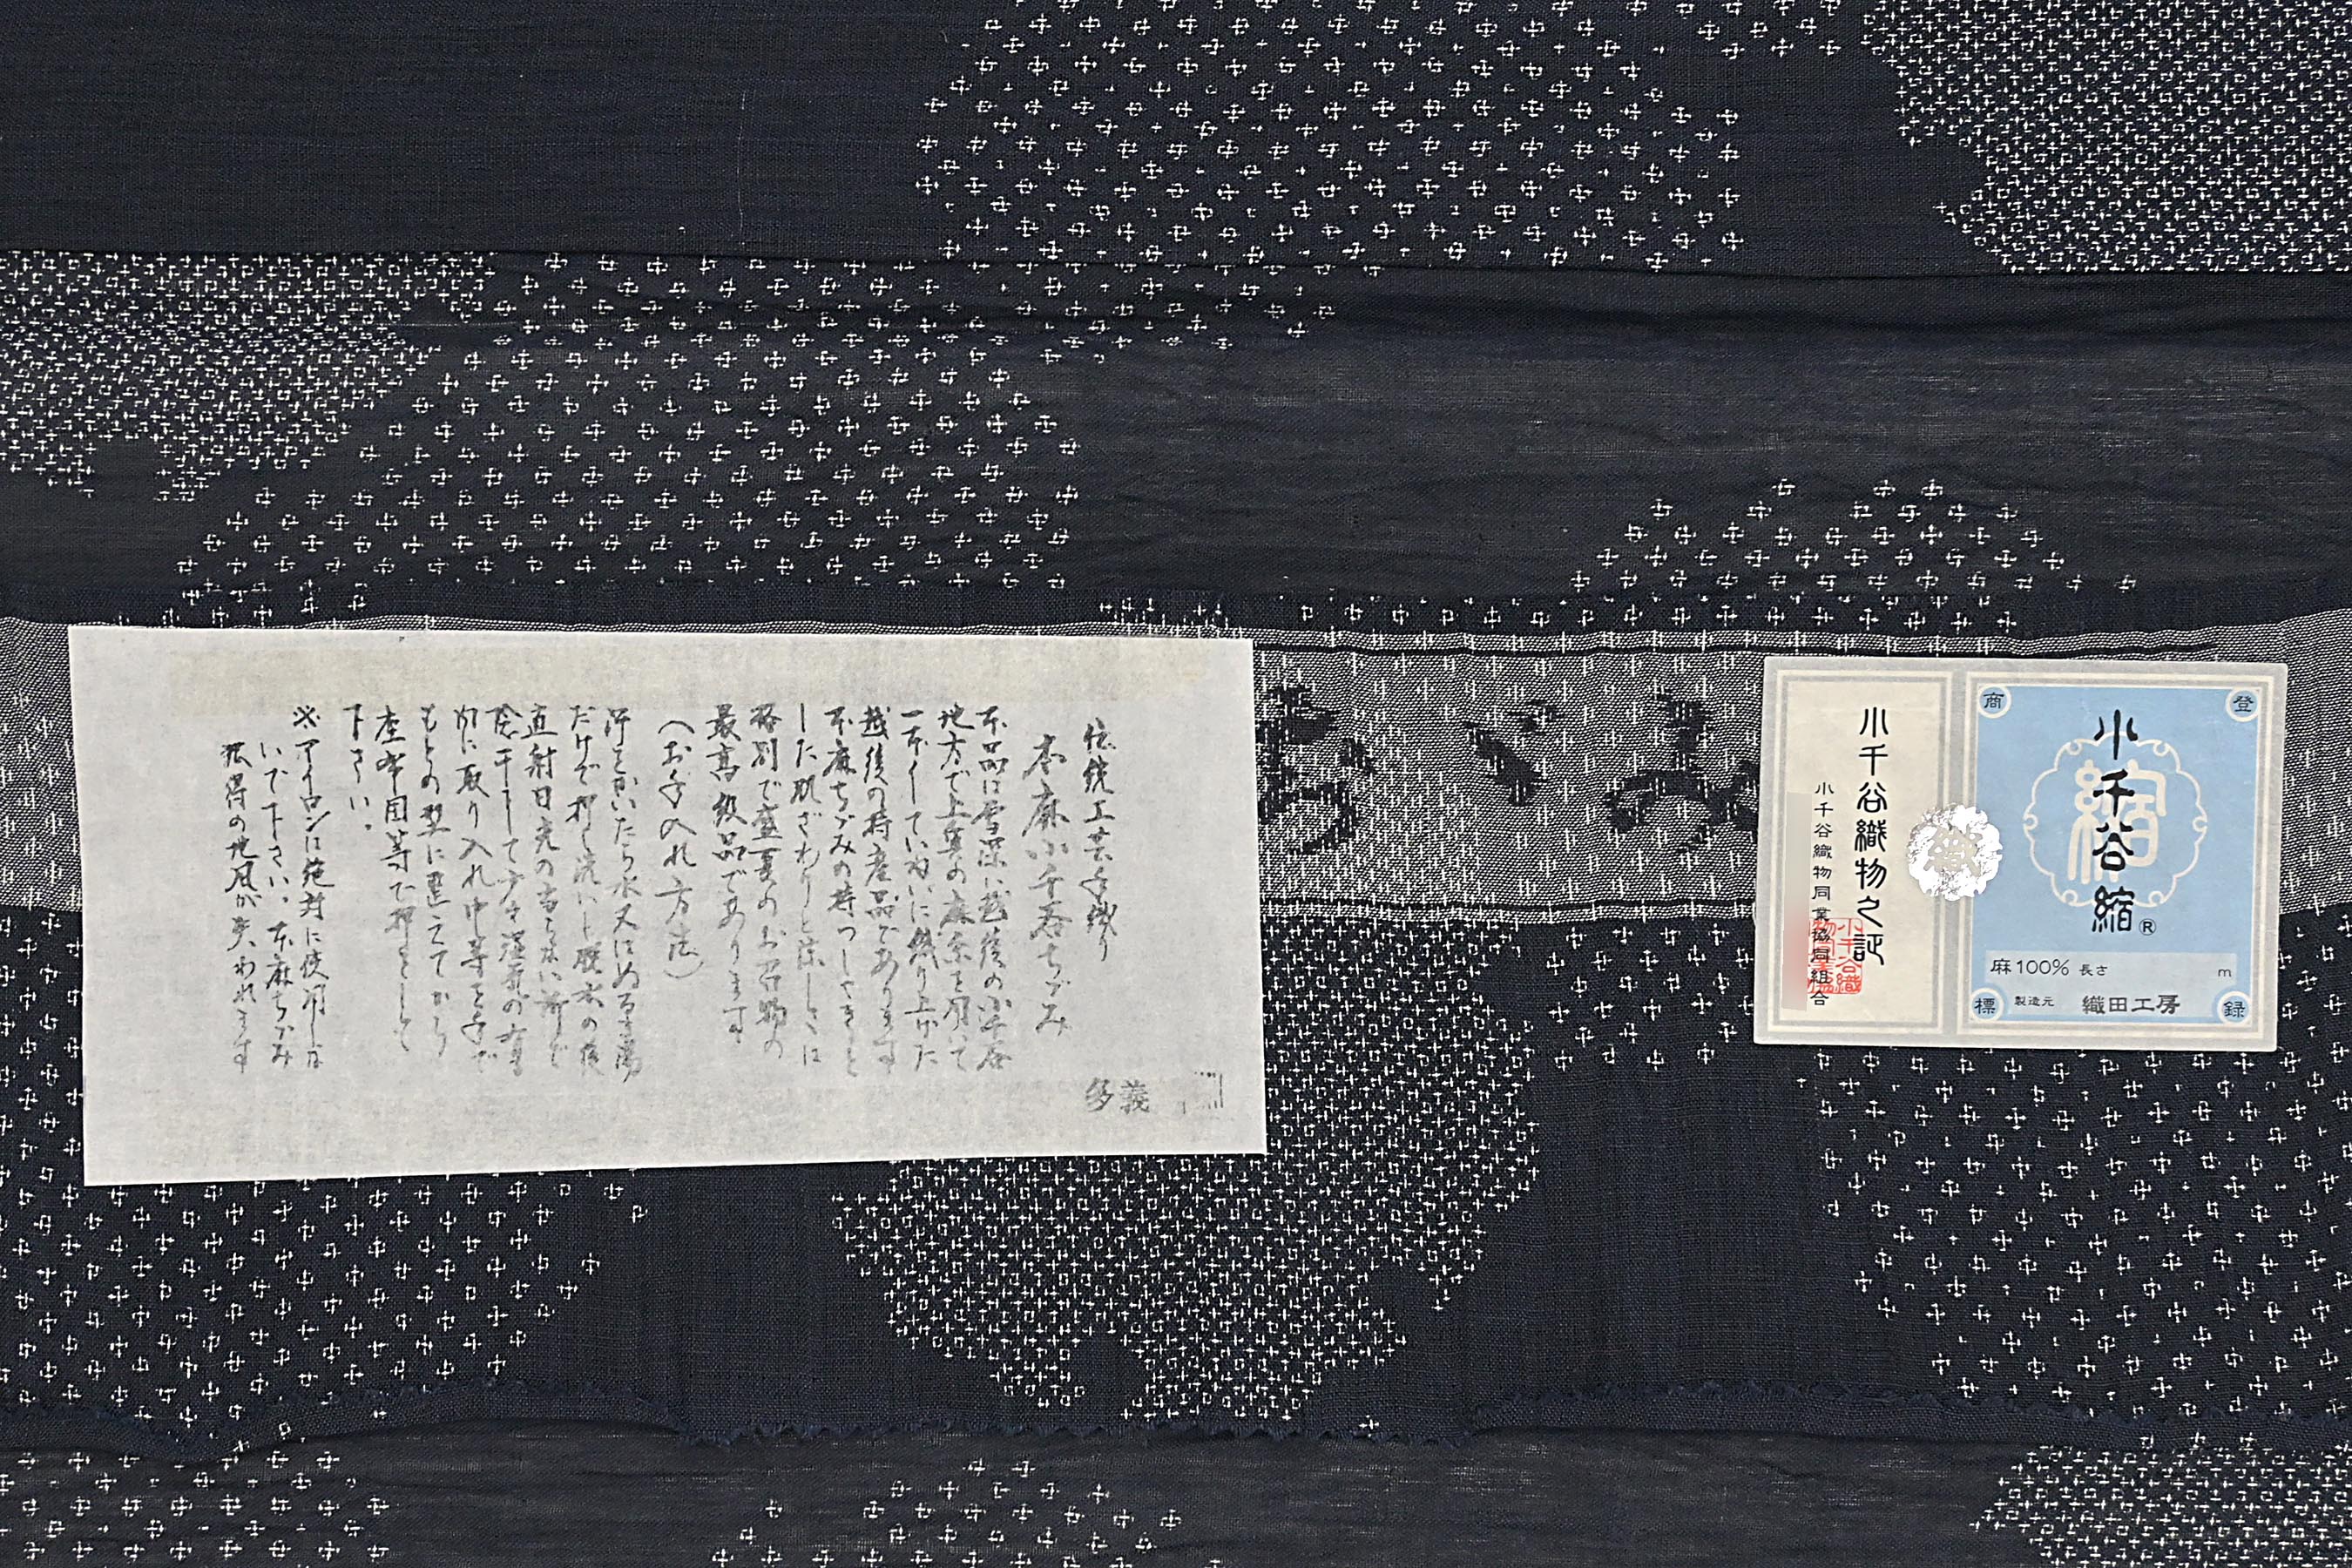 伝統工芸手織り
本麻小千谷ちぢみ
本品は雪深い越後の小千谷
地方で上質の麻糸を用いて
一本一本ていねいに織り上げた
越後の特産品であります
本麻ちぢみの持つしゃきっと
した肌ざわりと涼しさは
格別で盛夏のお召物の
最高級品であります
(お手入れ方法)
汗をかいたら水又はぬるま湯
だけで押し洗いし脱水の後
直射日光の当らない所で
陰干しして少々湿気が有る
内に取り入れ巾等を手で
もとの型に整えてから
座布団等で押をして
下さい。
※アイロンは絶対に使用しな
いで下さい。本麻ちぢみ
独得の地風が失われます
多義
小千谷縮®
縮
登録商標
麻100% 長さ m
製造元 織田工房
小千谷織物之証
小千谷織物同業協同組合